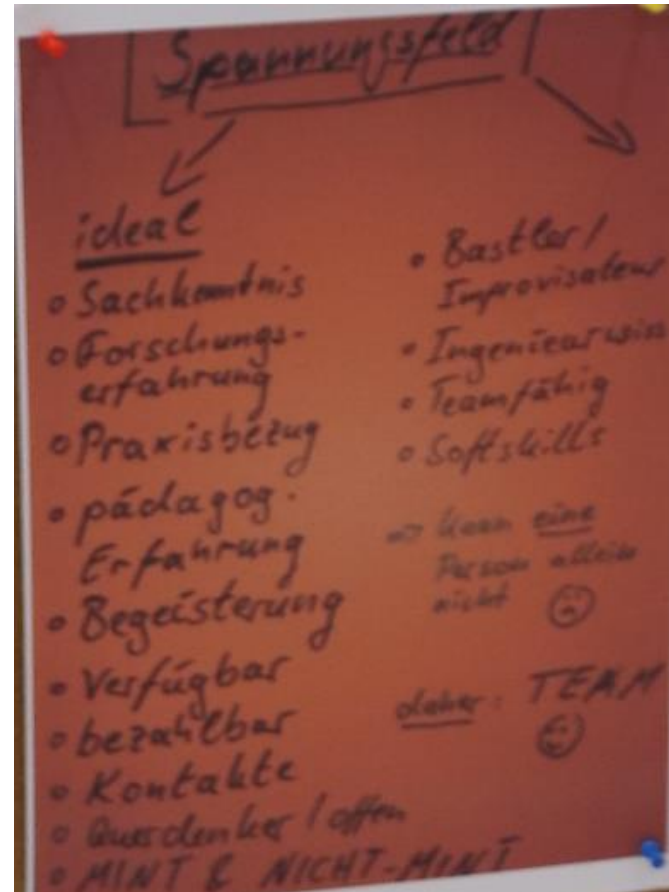 Spannungsfeld
ideal
Sachkenntnis
Forschungs-
erfahrung
Praxisbezug
pädagog.
Erfahrung
Begeisterung
Verfügbar
bezahlbar
Kontakte
Querdenker / offen
MINT & NICHT-MINT
Bastler /
Improvisateur
Ingenieurwiss
Teamfähig
Softskills
⇒ kann eine
Person allein
nicht ☹
daher: TEAM
☺